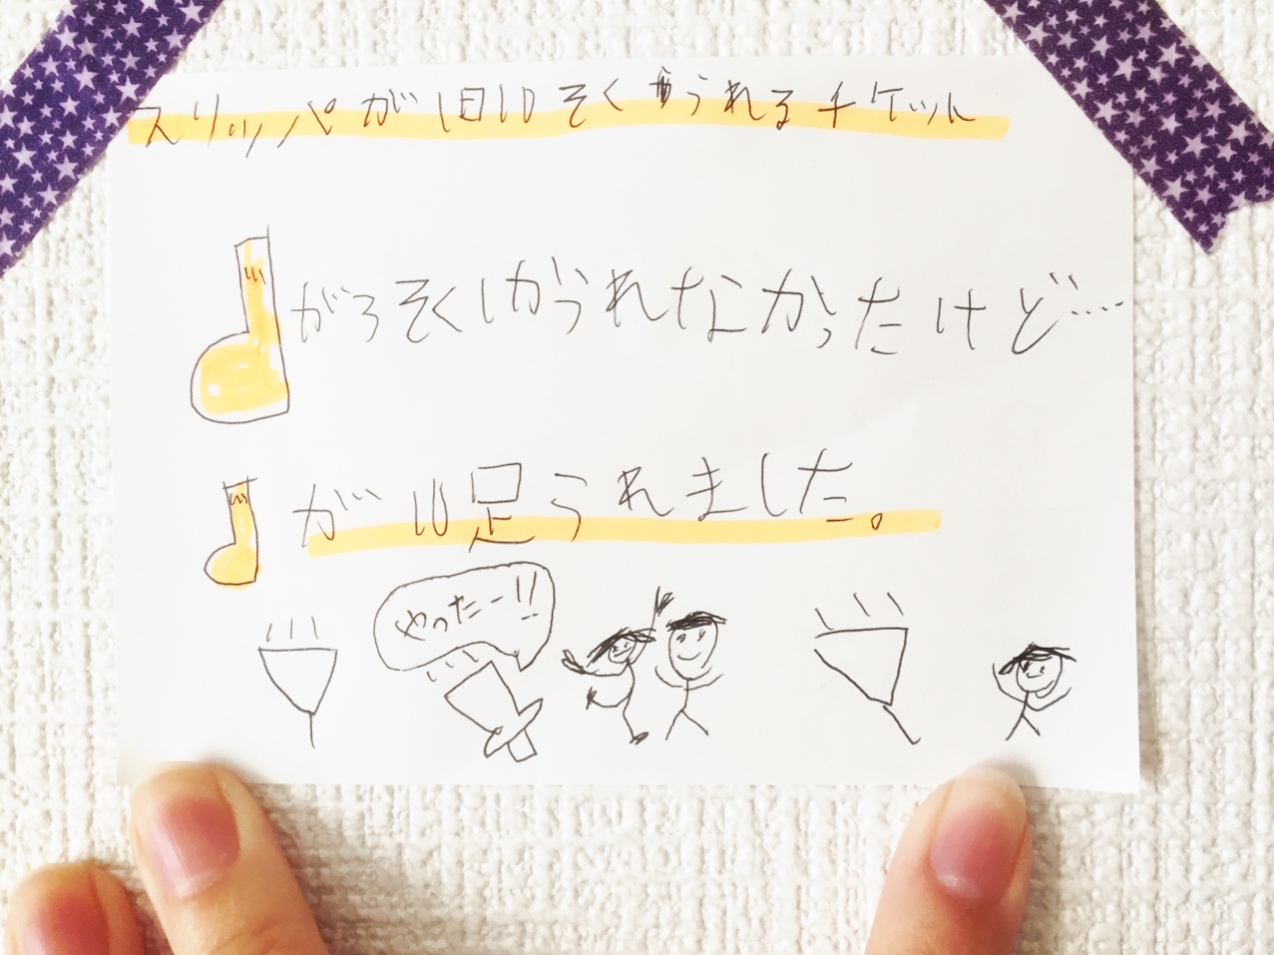 スリッパが1日10そくうれるチケット
がろそくしかうれなかったけど…
が10足うれました。
やったー!!